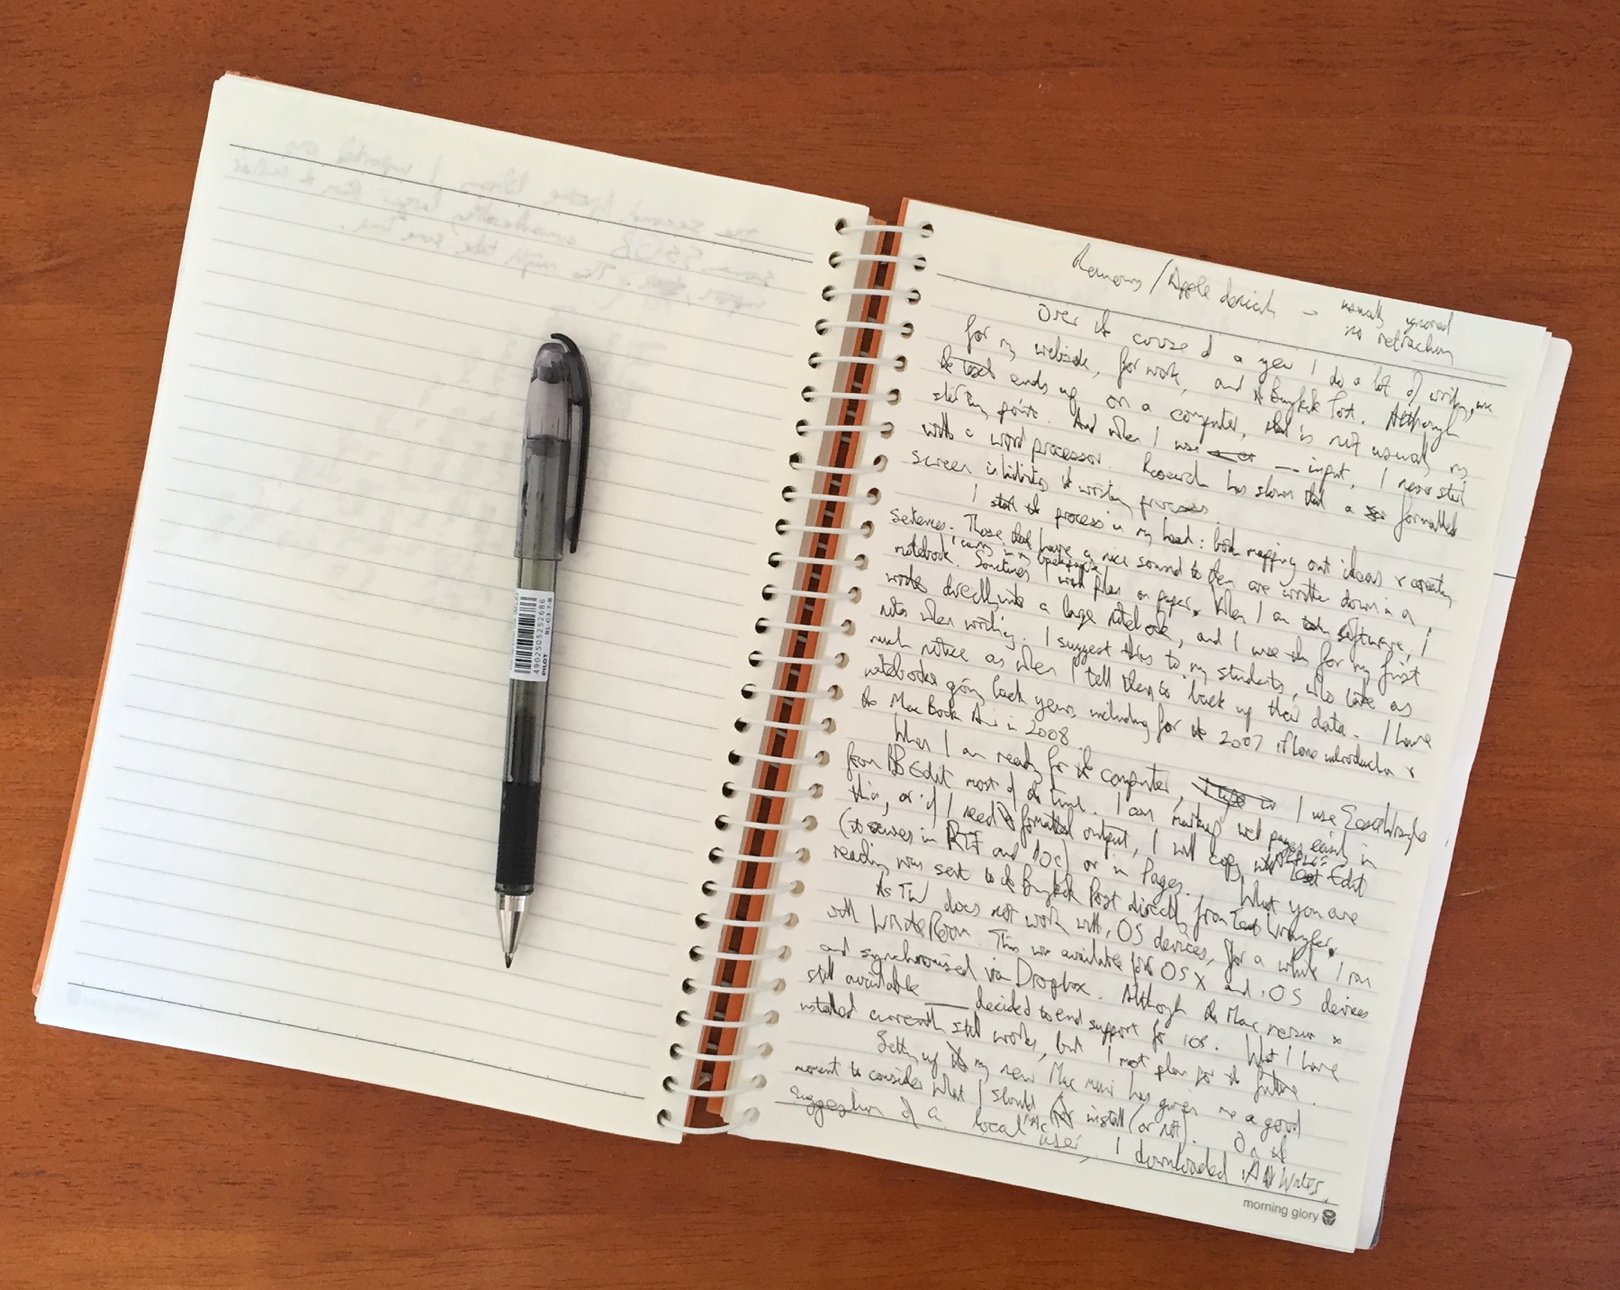 Rumours / Apple denials - usually ignored
no retraction
Over the course of a year I do a lot of writing,
for my website, for work, and Bangkok Post. Although
the text ends up on a computer, that is not usually my
starting point. And when I use input, I never start
with a word processor. Research has shown that a formatted
screen inhibits the writing process.
I start the process in my head: both mapping out ideas & creating
sentences. Those that have a nice sound to them are written down in a
I carry in my
notebook. Sometimes I will plan on paper. When I am software, I
write directly into a large notebook, and I use for my first
notes when writing. I suggest this to my students, who take as
much notice as when I tell them to back up their data. I have
notebooks going back years, including for the 2007 iPhone introduction &
the MacBook Air in 2008.
When I am ready for the computer, I type in I use TextWrangler
from BBEdit most of the time. I can markup web pages easily in
this, or if I need formatted output, I will copy Text Edit
(it saves in RTF and Doc) or in Pages. What you are
reading was sent to the Bangkok Post directly from Text Wrangler.
As TW does not work with iOS devices, for a while I ran
with WriteRoom. This was available for OS X and iOS devices
and synchronised via Dropbox. Although the Mac version is
still available decided to end support for iOS. What I have
installed currently still works, but I must plan for the future.
Setting up my new Mac mini has given me a good
moment to consider what I should install (or not). On the
suggestion of a local Mac user, I downloaded iA Writer.
morning glory
4902505252686
BL-G1-7-B
PILOT